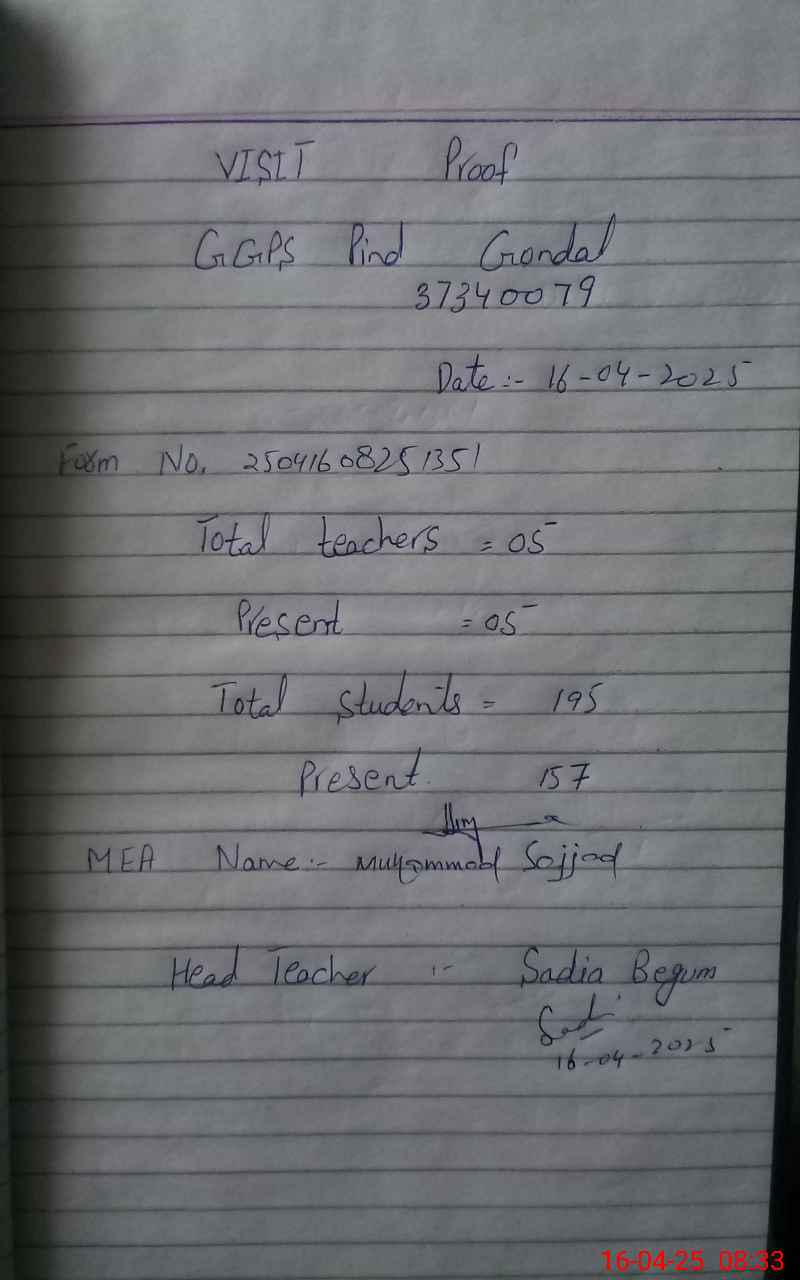 VISIT Proof
GGPS Pind Gondal
37340079
Date :- 16-04-2025
Form No. 25041608251351
Total teachers = 05
Present = 05
Total students = 195
Present. 157
MEA Name:- Muhammad Sajjad
Head Teacher :- Sadia Begum
16-04-2025
16-04-25 08:33